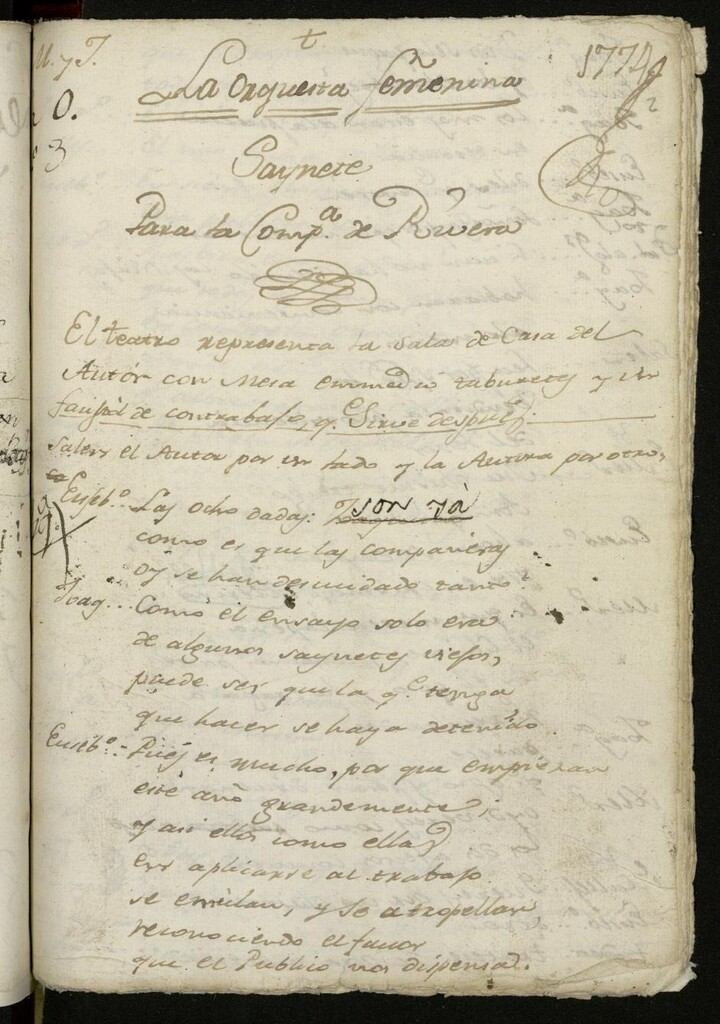 M. y T.
t
1774
La Orquesta femenina
2
O.
3
Saynete
Para la Comp.ª de Rivera
El teatro representa la sala de Casa del
Autór con Mesa enmedio taburetes y un
de contrabajo, q.e Sirve despues.
Salen el Autor por un lado y la Autora por otro,
Euseb.º Las ocho dadas: son yà
como es que las compañeras
oy se han descuidado tanto?
Joaq... Como el ensayo solo era
de algunos saynetes viejos,
puede ser que la q.e tenga
que hacer se haya detenido.
Euseb.º - Pues es mucho, por que empiezan
este año grandemente;
y asi ellos como ellas
en aplicarse al trabajo
se emulan, y se atropellan,
reconociendo el favor
que el Publico nos dispensa.